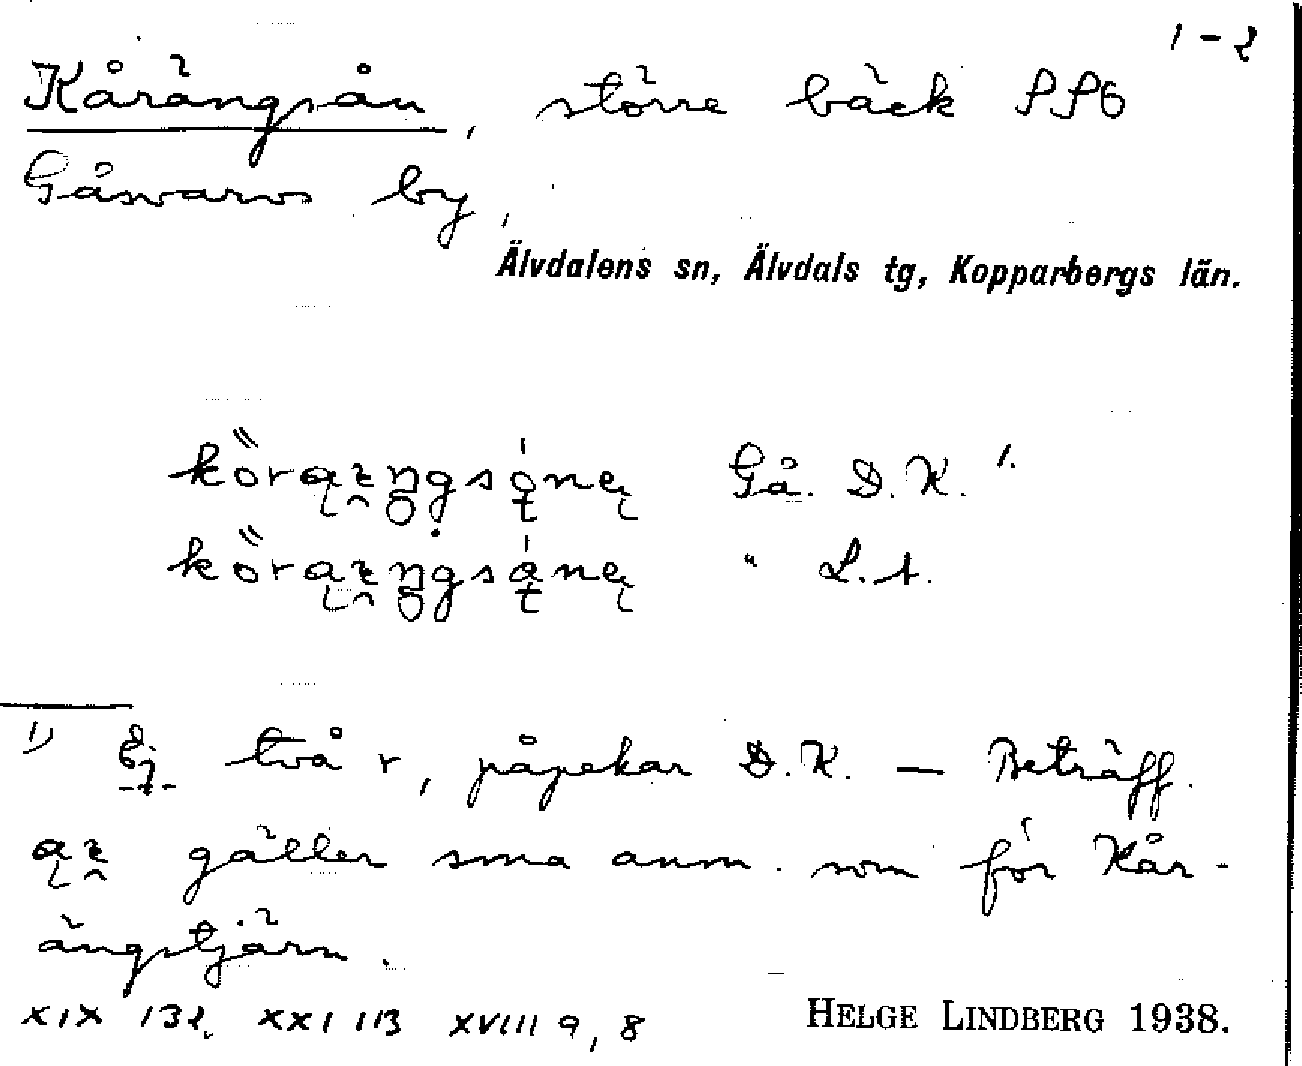 1-2
Kårängsån, större bäck SSÖ
Gåsvarvs by,
Älvdalens sn, Älvdals tg, Kopparbergs län.
Gå. D.K. 1.
" L.t.
1) Ej två r, påpekar D.K. — Beträff.
gäller sma anm. som för Kår-
ängstjärn.
XIX 132, XXI 113 XVIII 9, 8
HELGE LINDBERG 1938.